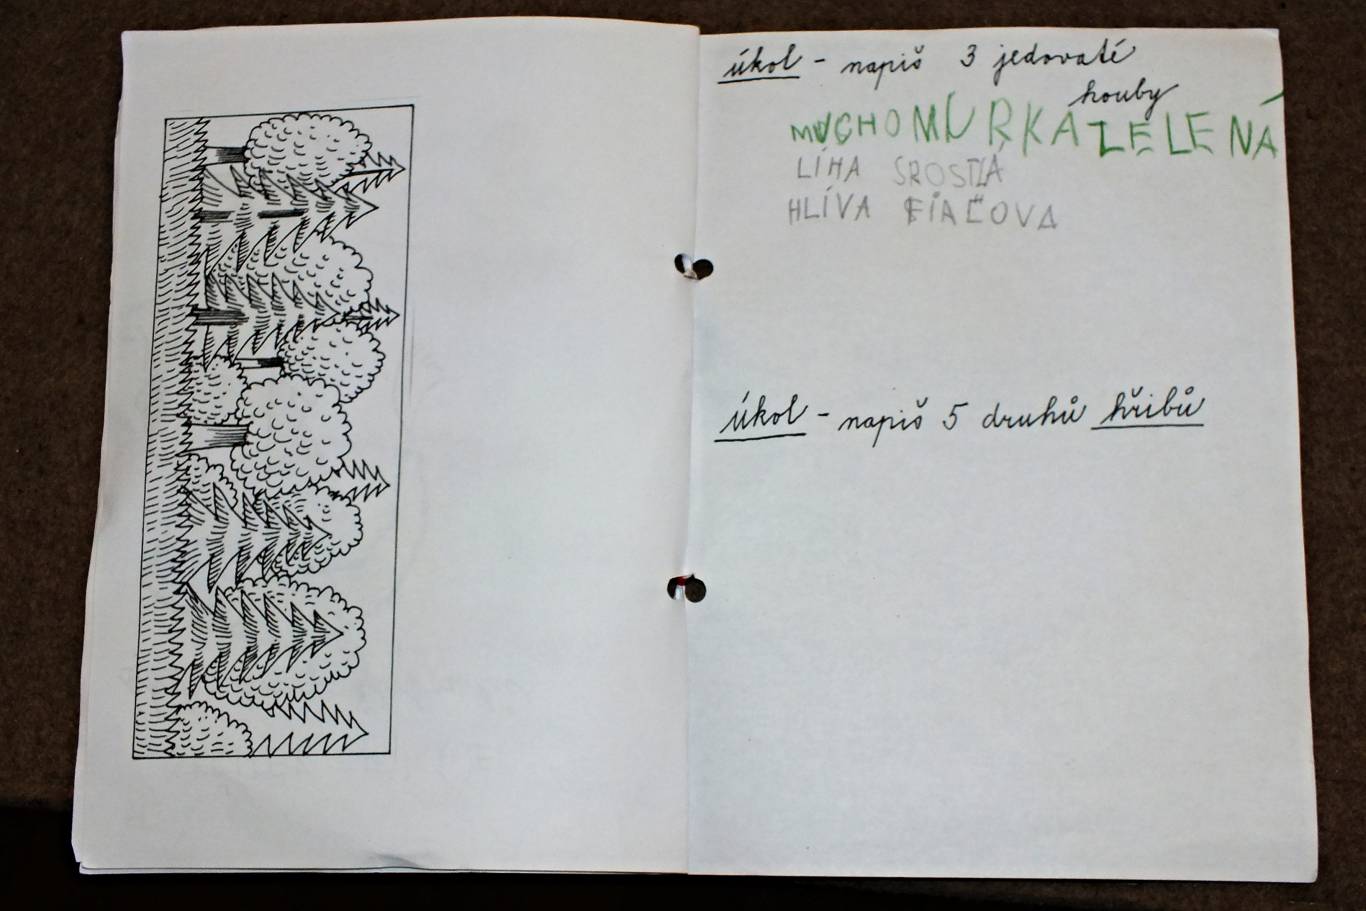 úkol - napiš 3 jedovaté
houby
MUCHOMŮRKA ZELENÁ
LÍHA SROSTLÁ
HLÍVA FIALOVA
úkol - napiš 5 druhů hřibů